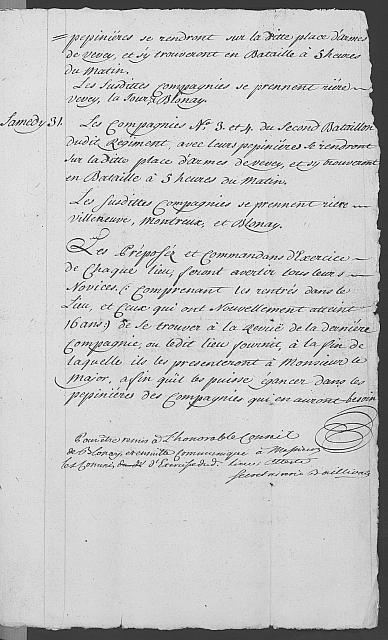 = pepinières se rendront sur la ditte place d'armes
de vevey, et s'y trouveront en Bataille à 5 heures
du Matin.
Les susdittes Compagnies se prennent rière
vevey, la Tour, & Blonay.
Samedy 31. Les Compagnies No. 3. et 4. du Second Bataillon
dudit Regiment, avec leurs pepinières se rendront
sur la Ditte place d'armes de vevey, et s'y trouveront
en Bataille à 5 heures du Matin.
Les susdittes Compagnies se prennent rière
villeneuve, Montreux, et Blonay.
Les Préposés et Commandans d'Exercice
de Chaque lieu, feront avertir tous leurs
Novices (: Comprenant les rentrés dans le
Lieu, et Ceux qui ont Nouvellement atteint
16 ans :) de se trouver à la Revüe de la dernière
Compagnie, ou ledit lieu fournit, à la fin de
laquelle ils les presenteront à Monsieur le
Major, afin qu'il les puisse agancer dans les
pepinières des Compagnies qui en auront besoin
Pour être remis à l'honorable Conseil
de Blonay, et ensuitte Communiqué à Messieurs
les Commis d'Exercise dud. lieu. Atteste